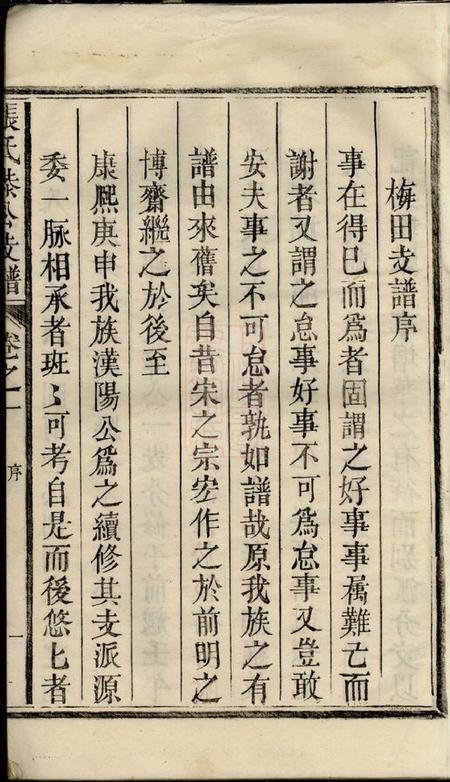 梅田支譜序
事在得已而爲者固謂之好事事属難已而
謝者又謂之怠事好事不可爲怠事又豈敢
安夫事之不可怠者孰如譜哉原我族之有
譜由來舊矣自昔宋之宗宏作之於前明之
博齋繼之於後至
康熙庚申我族漢陽公爲之續修其支派源
委一脉相承者班〻可考自是而後悠〻者
張氏恭公支譜
卷之一
序
一